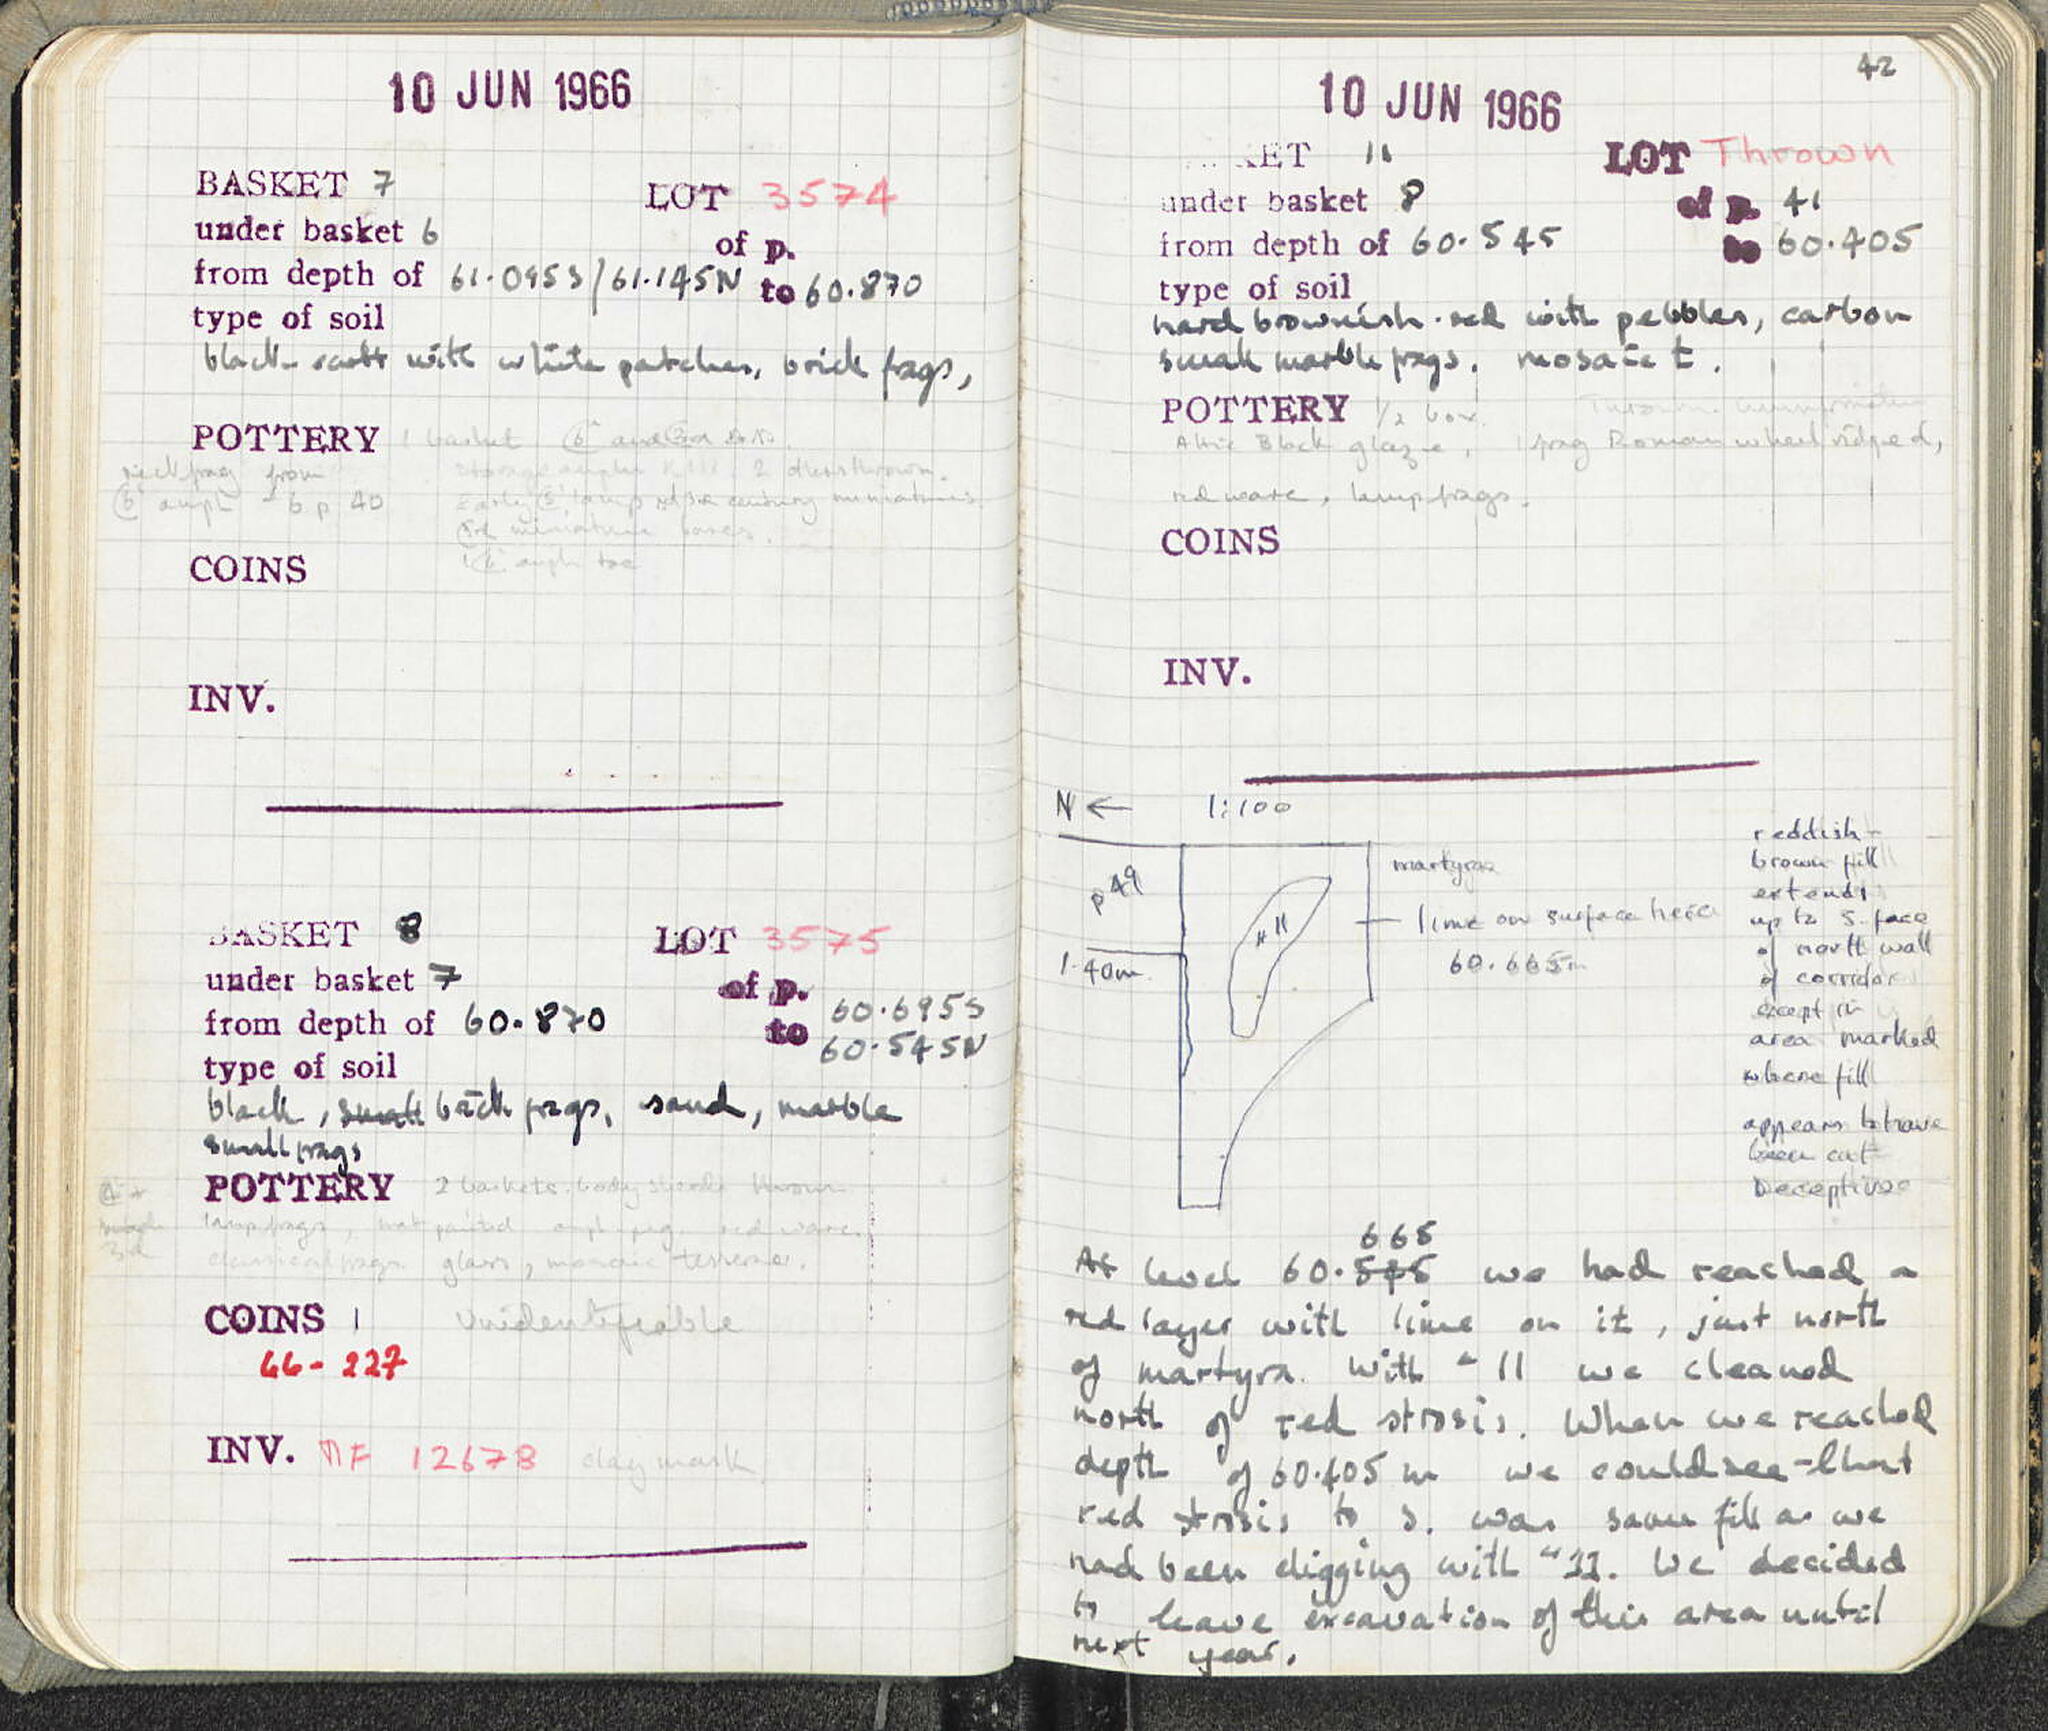 10 JUN 1966
BASKET 7 LOT 3574
under basket 6 of p.
from depth of 61.095S/61.145N to 60.870
type of soil
black with white patches, brick frags,
POTTERY 1 basket
neck frag from
amph 6 p 40
miniature bases.
amph toe
COINS
INV.
BASKET 8 LOT 3575
under basket 7 of p.
from depth of 60.870 to 60.695S
60.545N
type of soil
black, small brick frags, sand, marble
small frags
POTTERY 2 baskets. body sherds thrown
lamp frags, red ware.
classical frags. glass, mosaic tesserae.
COINS 1 Unidentifiable
66-227
INV. MF 12678 clay mask
42
10 JUN 1966
KET 11 LOT Thrown
under basket 8 of p. 41
from depth of 60.545 to 60.405
type of soil
hard brownish-red with pebbles, carbon
small marble frags. mosaic t.
POTTERY 1/2 box. Thrown.
Attic Black glaze, 1 frag Roman wheel ridged,
red ware, lamp frags.
COINS
INV.
N ← 1:100
p 49
martyra
lime on surface here
60.665m
1.40m.
"11
reddish-
brown fill
extends
up to S. face
of north wall
of corridor
except in
area marked
where fill
appears to have
been cut
Deceptive
665
At level 60.545 we had reached a
red layer with lime on it, just north
of martyra. With "11 we cleaned
north of red strosis. When we reached
depth of 60.405 m we could see that
red strosis to S. was same fill as we
had been digging with "11. We decided
to leave excavation of this area until
next year.